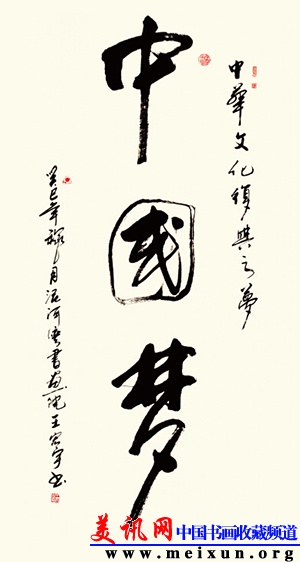 中華文化復興之夢
中國梦
癸巳年 月泥河湾書画院王 宇书
美讯网 中国书画收藏频道
www.meixun.org